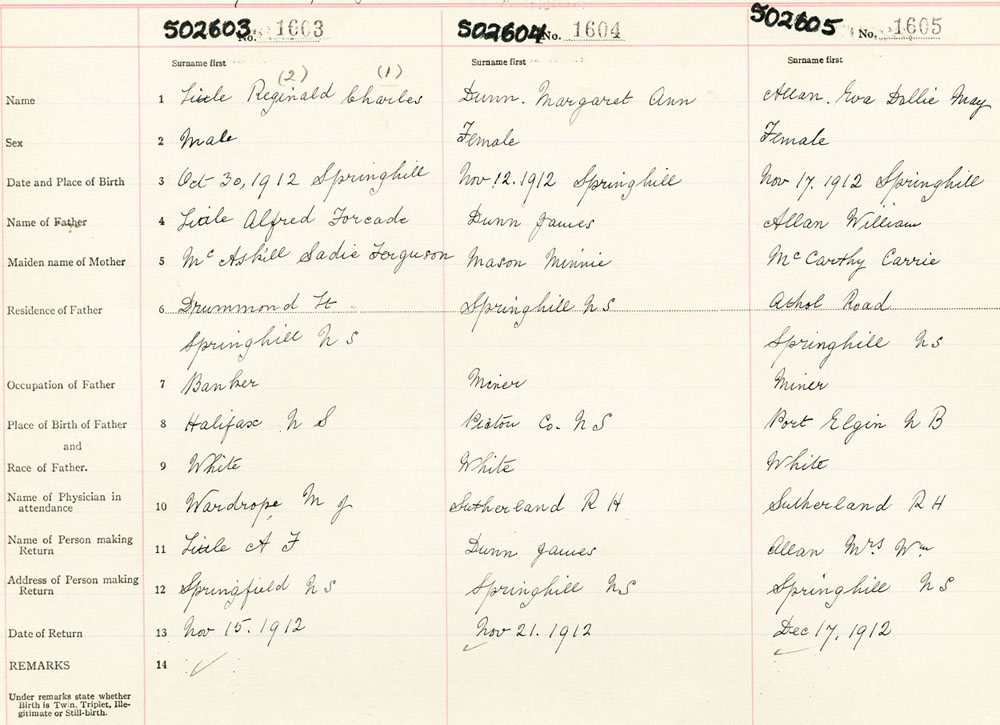 502603 No. 1603 502604 No. 1604 502605 No. 1605
Surname first Surname first Surname first
(2) (1)
Name 1 Little Reginald Charles Dunn. Margaret Ann Allan. Eva Dollie May
Sex 2 Male Female Female
Date and Place of Birth 3 Oct 30, 1912 Springhill Nov 12. 1912 Springhill Nov 17. 1912 Springhill
Name of Father 4 Little Alfred Forcade Dunn James Allan William
Maiden name of Mother 5 Mc Askill Sadie Ferguson Mason Minnie Mc Carthy Carrie
Residence of Father 6 Drummond St Springhill N S Athol Road
Springhill N S Springhill NS
Occupation of Father 7 Banker Miner Miner
Place of Birth of Father 8 Halifax N S Pictou Co. N S Port Elgin N B
and
Race of Father. 9 White White White
Name of Physician in
attendance 10 Wardrope M J Sutherland R H Sutherland R H
Name of Person making
Return 11 Little A F Dunn James Allan Mrs Wm
Address of Person making
Return 12 Springfield N S Springhill NS Springhill NS
Date of Return 13 Nov 15. 1912 Nov 21. 1912 Dec 17, 1912
REMARKS 14
Under remarks state whether
Birth is Twin, Triplet, Ille-
gitimate or Still-birth.